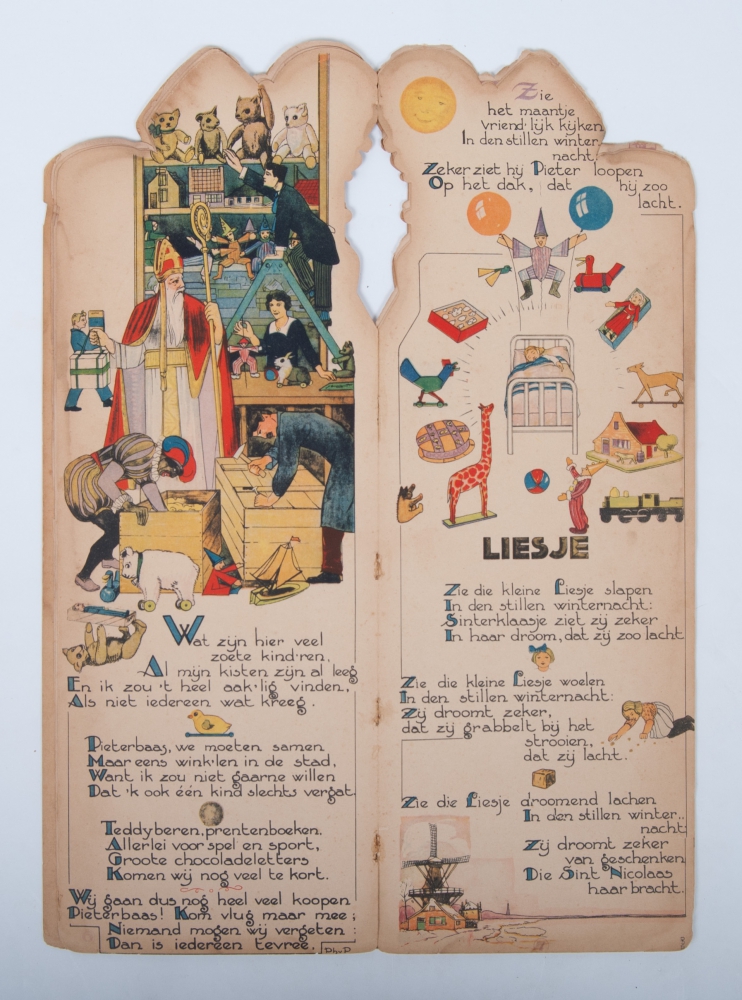 Wat zijn hier veel
zoete kind'ren,
Al mijn kisten zijn al leeg
En ik zou 't heel aak'lig vinden,
Als niet iedereen wat kreeg.
Pieterbaas, we moeten samen
Maar eens wink'len in de stad,
Want ik zou niet gaarne willen
Dat 'k ook één kind slechts vergat.
Teddyberen, prentenboeken.
Allerlei voor spel en sport,
Groote chocoladeletters
Komen wij nog veel te kort.
Wij gaan dus nog heel veel koopen
Pieterbaas! Kom vlug maar mee;
Niemand mogen wij vergeten:
Dan is iedereen tevreê.
Zie
het maantje
vriend'lijk kijken
In den stillen winter
nacht.
Zeker ziet hij Pieter loopen
Op het dak, dat hij zoo
lacht.
LIESJE
Zie die kleine Liesje slapen
In den stillen winternacht:
Sinterklaasje ziet zij zeker
In haar droom, dat zij zoo lacht
Zie die kleine Liesje woelen
In den stillen winternacht:
Zij droomt zeker,
dat zij grabbelt bij het
strooien,
dat zij lacht.
Zie die Liesje droomend lachen
In den stillen winter..
nacht
Zij droomt zeker
van geschenken
Die Sint Nicolaas
haar bracht.